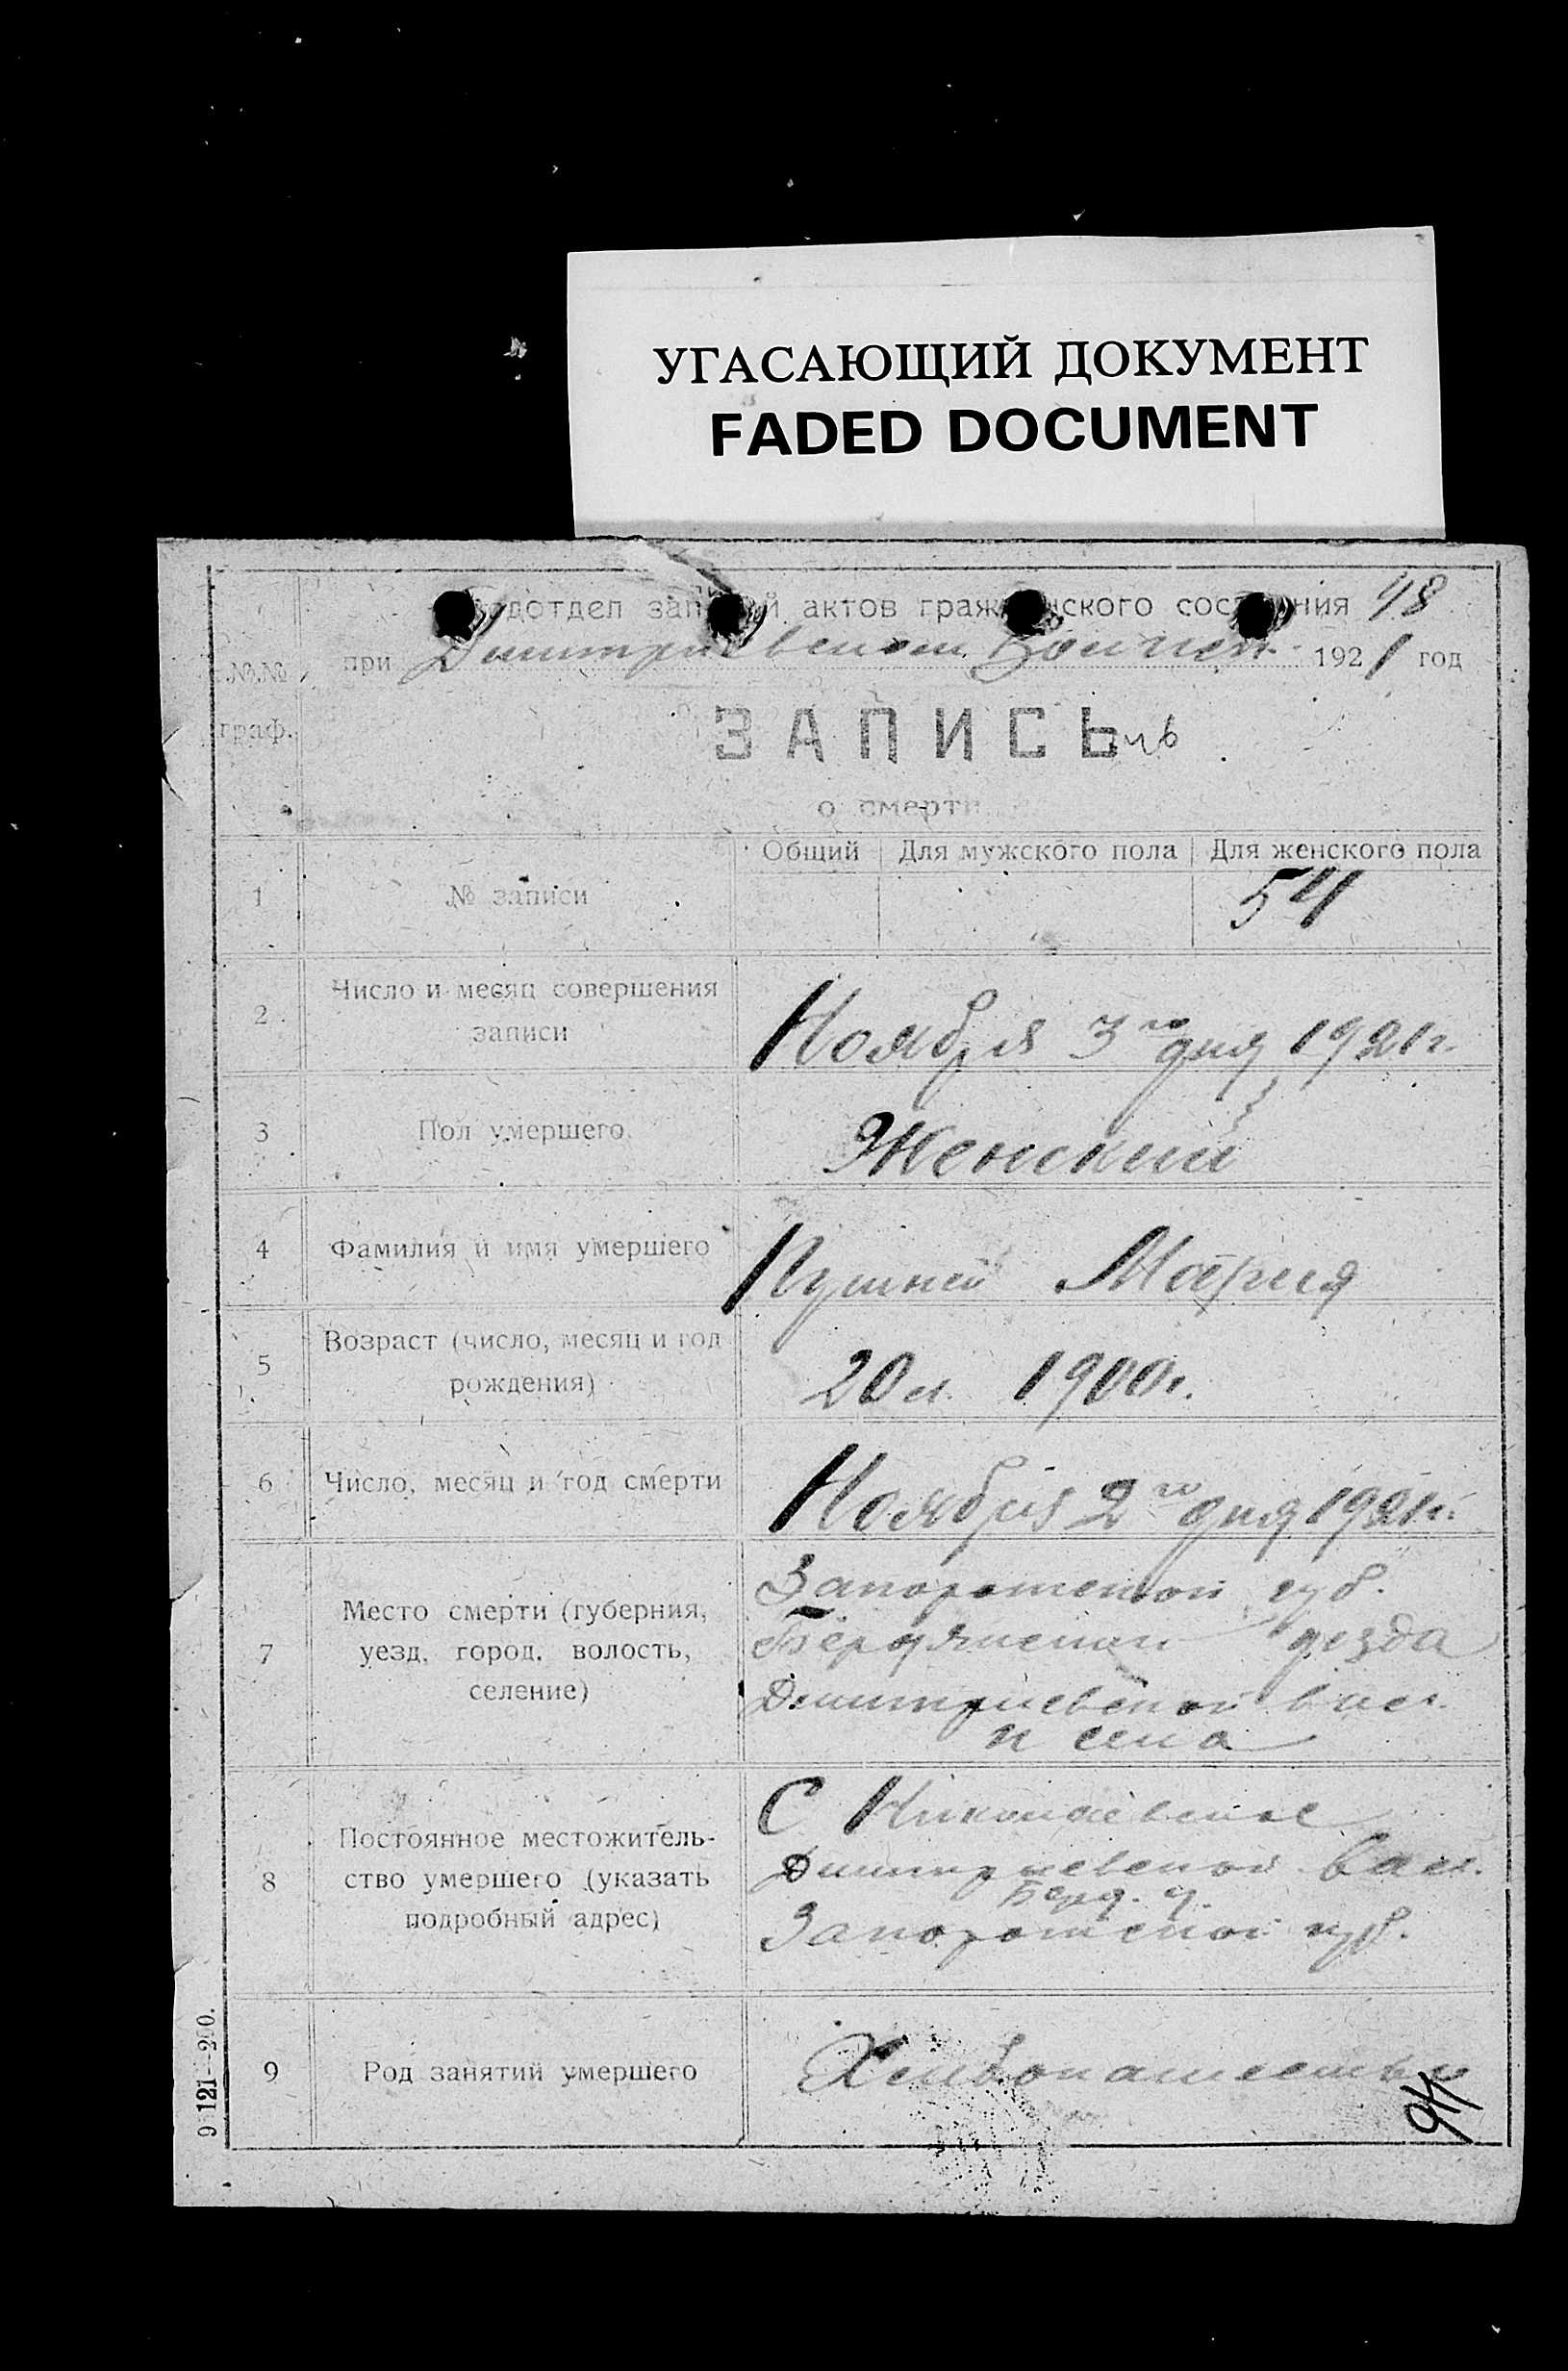 УГАСАЮЩИЙ ДОКУМЕНТ
FADED DOCUMENT
Подотдел записей актов гражданского состояния 48
при Дмитриевском 1921 год
№№
граф.
ЗАПИСЬ
о смерти
Общий Для мужского пола Для женского пола
1 № записи 54
2 Число и месяц совершения
записи
Ноября 3го дня 1921 г.
3 Пол умершего Женский
4 Фамилия и имя умершего Мария
5 Возраст (число, месяц и год
рождения)
20 л. 1900 г.
6 Число, месяц и год смерти Ноября 2го дня 1921 г.
7 Место смерти (губерния,
уезд, город, волость,
селение)
Запорожской губ.
Бердянского уезда
Дмитриевской вол.
8 Постоянное местожитель-
ство умершего (указать
подробный адрес)
С Николаевское
Дмитриевской вол.
Берд. у.
Запорожской губ.
9 Род занятий умершего Хлебопашество
9 121—200.